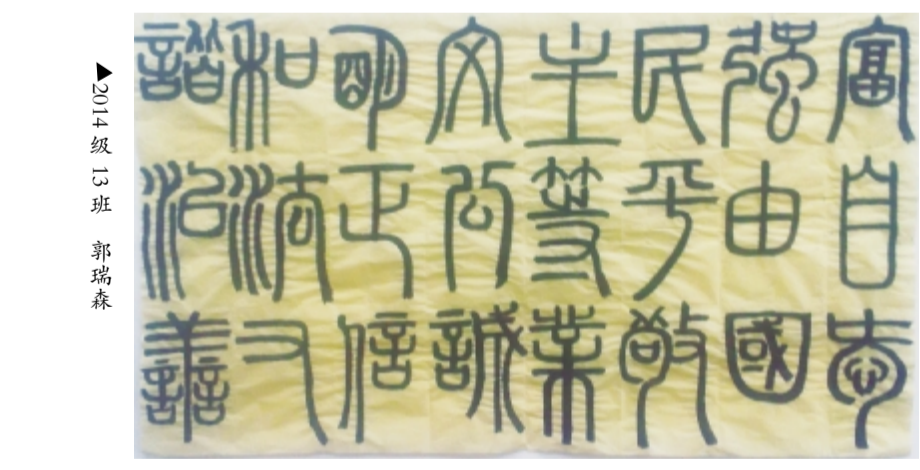 富強民主文明和諧
自由平等公正法治
愛國敬業誠信友善
▲2014级 13班 郭瑞森